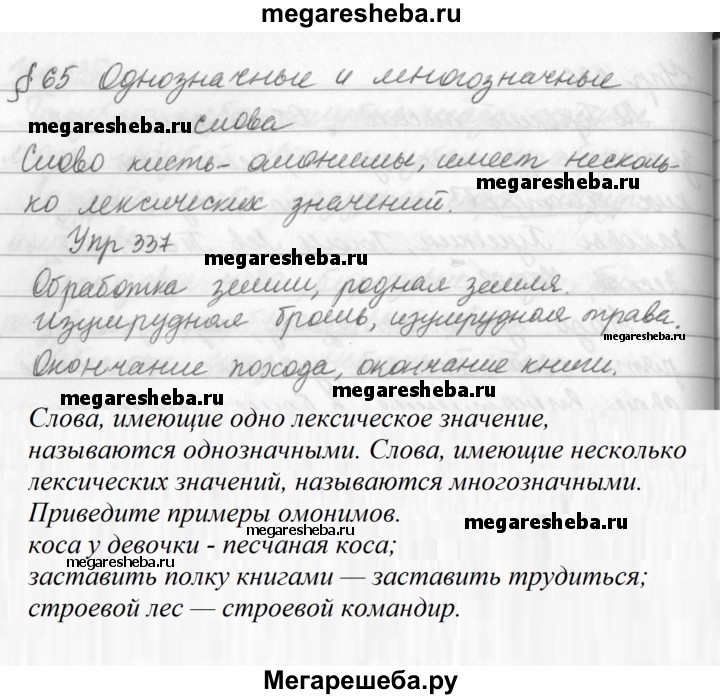 megaresheba.ru
§ 65 Однозначные и многозначные
megaresheba.ru слова
Слово кисть - омонимы, имеет несколь-
megaresheba.ru
ко лексических значений.
Упр 337
megaresheba.ru
Обработка земли, родная земля.
Изумрудная брошь, изумрудная трава.
megaresheba.ru
Окончание похода, окончание книги.
megaresheba.ru
megaresheba.ru
Слова, имеющие одно лексическое значение,
называются однозначными. Слова, имеющие несколько
лексических значений, называются многозначными.
Приведите примеры омонимов.
megaresheba.ru
коса у девочки - песчаная коса;
megaresheba.ru
заставить полку книгами — заставить трудиться;
строевой лес — строевой командир.
Мегарешеба.ру